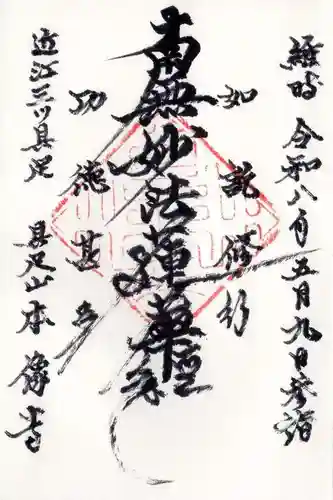 維時 令和八年五月九日参詣
如説修行
南無妙法蓮華経
功徳甚多
近江三ツ具足 具足山 本像寺